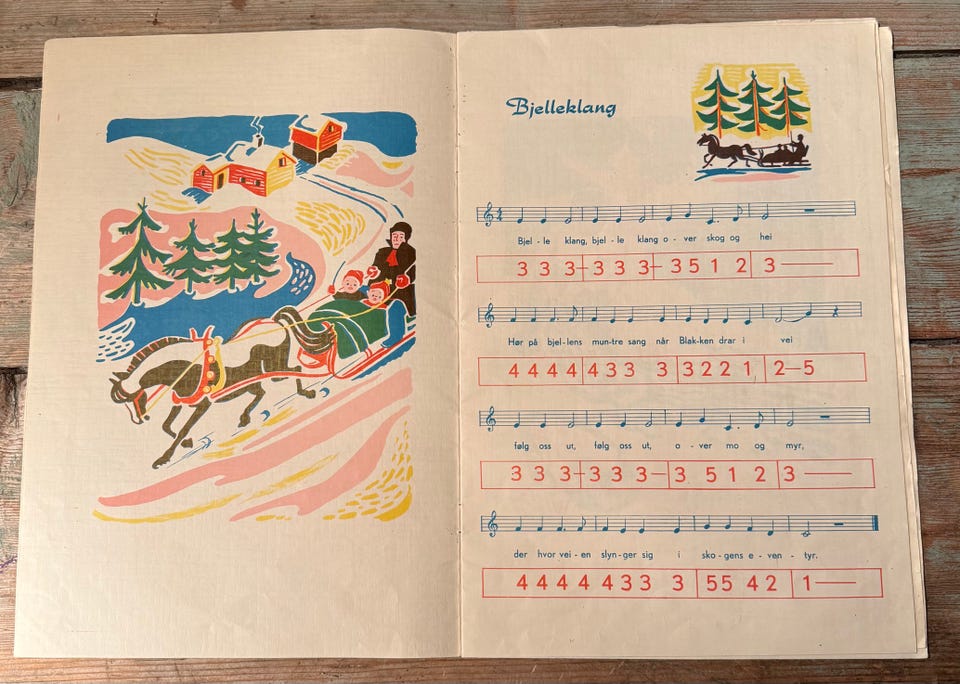 Bjelleklang
Bjel - le klang, bjel - le klang o - ver skog og hei
3 3 3 – 3 3 3 – 3 5 1 2 3 —
Hør på bjel - lens mun - tre sang når Blak - ken drar i vei
4 4 4 4 4 3 3 3 3 2 2 1 2 – 5
følg oss ut, følg oss ut, o - ver mo og myr,
3 3 3 – 3 3 3 – 3 5 1 2 3 —
der hvor vei - en slyn - ger sig i sko - gens e - ven - tyr.
4 4 4 4 4 3 3 3 5 5 4 2 1 —